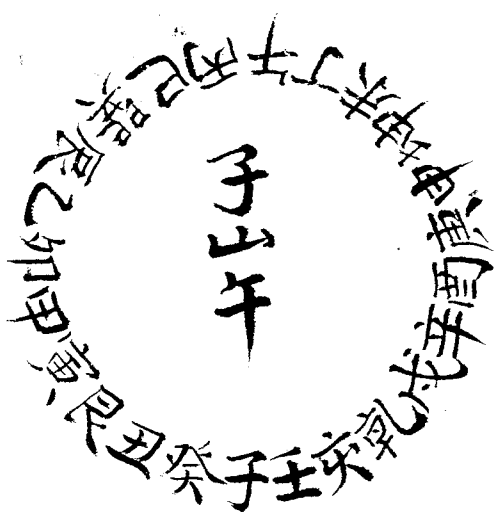 子山午
子癸丑艮寅甲卯乙辰巽巳丙午丁未坤申庚酉辛戌乾亥壬